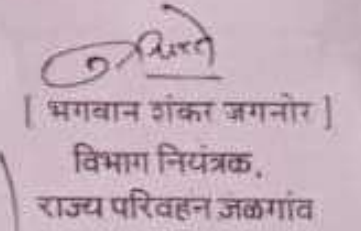 [ भगवान शंकर जगनोर ]
विभाग नियंत्रक,
राज्य परिवहन जळगांव